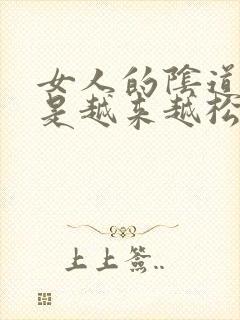 女人的陰道
是越来越松
上上簽..